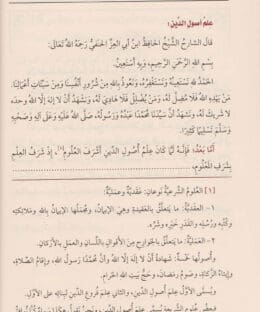 علم أصول الدين:
قال الشارح الشيخ الحافظ ابن أبي العز الحنفي رحمه الله تعالى:
بسم الله الرحمن الرحيم، وبه أستعين:
الحمد لله نستعينه ونستغفره، ونعوذ بالله من شرور أنفسنا ومن سيئات أعمالنا.
من يهده الله فلا مضل له، ومن يضلل فلا هادي له، ونشهد أن لا إله إلا الله وحده
لا شريك له، ونشهد أن سيدنا محمدا عبده ورسوله، صلى الله عليه وعلى آله وصحبه
وسلم تسليما كثيرا.
أما بعد: فإنه لما كان علم أصول الدين أشرف العلوم[١]، إذ شرف العلم
بشرف المعلوم،
[١] العلوم الشرعية نوعان: عقدية وعملية:
١ - العقدية: ما يتعلق بالعقيدة وهي الإيمان، ومجملها الإيمان بالله وملائكته
وكتبه ورسله والقدر خيره وشره.
٢ - العملية: ما يتعلق بالجوارح من الأقوال باللسان والعمل بالأركان.
وأصولها خمسة: شهادة أن لا إله إلا الله وأن محمدا رسول الله، وإقام الصلاة،
وإيتاء الزكاة، وصوم رمضان، وحج بيت الله الحرام.
ويسمى الأول علم أصول الدين، والثاني علم فروع الدين